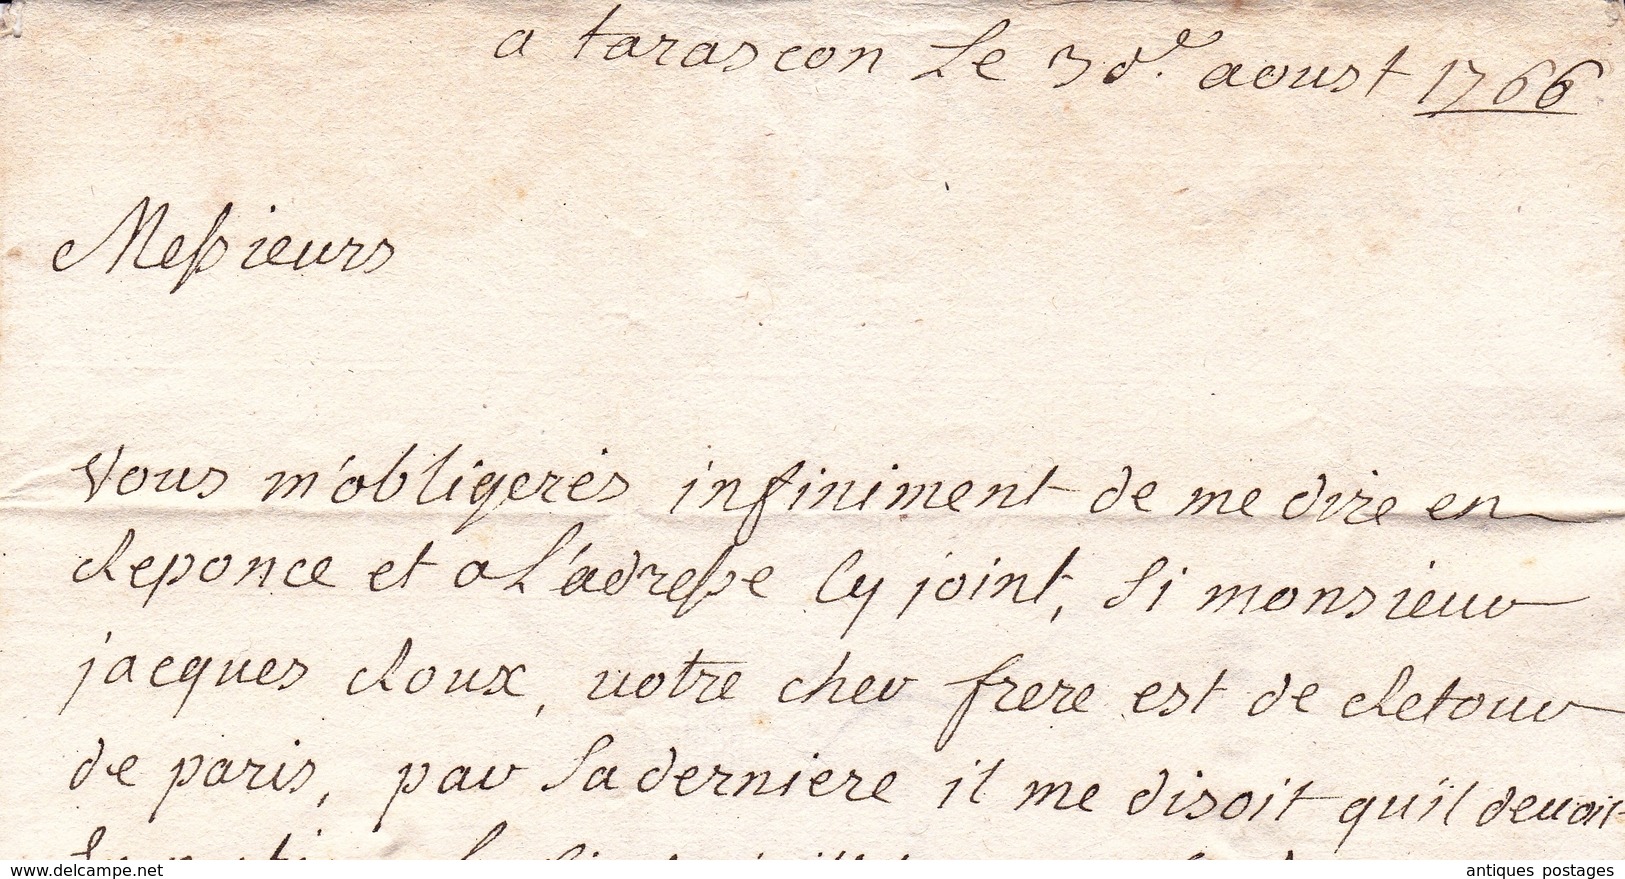 a tarascon Le 3 d.e aoust 1766
Messieurs
Vous m'obligerés infiniment de me dire en
Reponce et a L'adresse Cy joint, Si monsieur
jacques Roux, votre cher frere est de Retour
de paris, par Sa derniere il me disoit qu'il devoit
www.delcampe.net
antiques postages